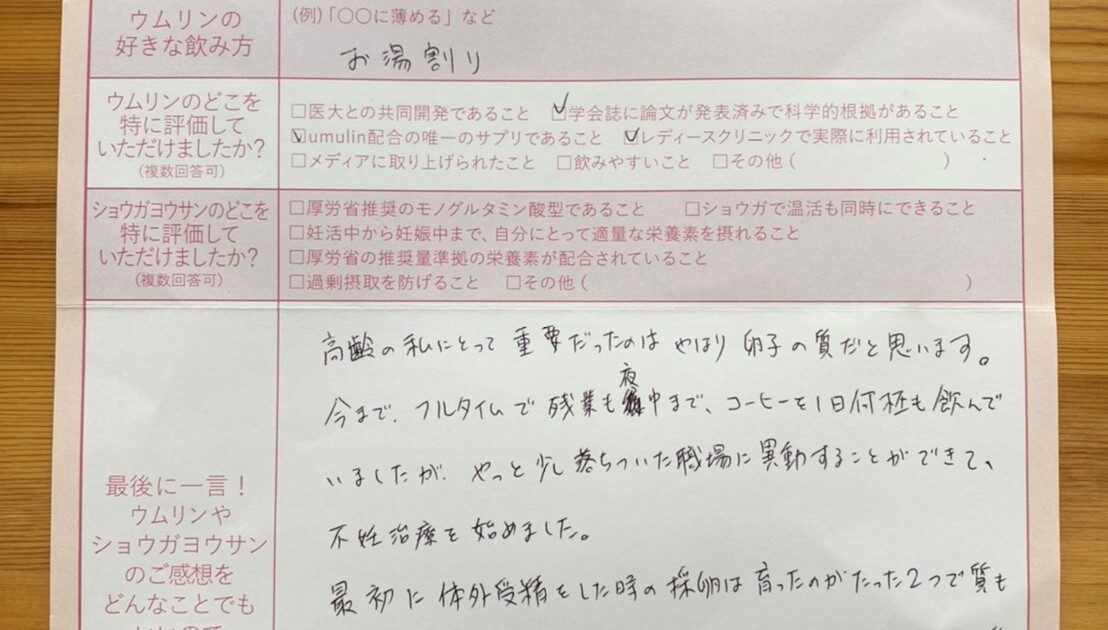 ウムリンの
好きな飲み方
(例)「〇〇に薄める」など
お湯割り
ウムリンのどこを
特に評価して
いただけましたか?
(複数回答可)
□医大との共同開発であること ☑学会誌に論文が発表済みで科学的根拠があること
☑umulin配合の唯一のサプリであること ☑レディースクリニックで実際に利用されていること
□メディアに取り上げられたこと □飲みやすいこと □その他( )
ショウガヨウサンのどこを
特に評価して
いただけましたか?
(複数回答可)
□厚労省推奨のモノグルタミン酸型であること □ショウガで温活も同時にできること
□妊活中から妊娠中まで、自分にとって適量な栄養素を摂れること
□厚労省の推奨量準拠の栄養素が配合されていること
□過剰摂取を防げること □その他( )
最後に一言!
ウムリンや
ショウガヨウサン
のご感想を
どんなことでも
高齢の私にとって重要だったのはやはり卵子の質だと思います。
今まで、フルタイムで残業も夜中まで、コーヒーを1日何杯も飲んで
いましたが、やっと少し落ちついた職場に異動することができて、
不妊治療を始めました。
最初に体外受精をした時の採卵は育ったのがたった2つで質も